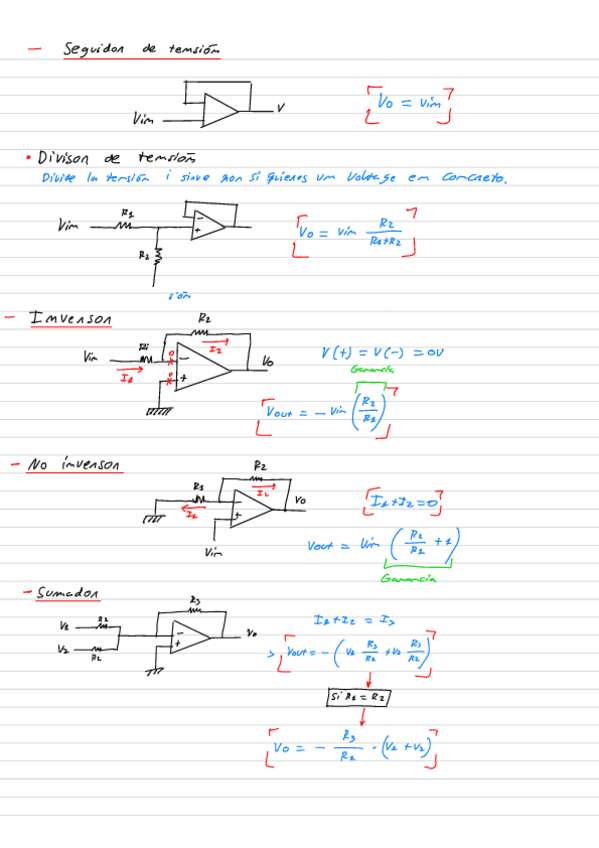 - Seguidor de tensión
Vin
V
Vo = Vin
• Divisor de tensión
Divide la tensión i sirve por si quieres un Voltage en concreto.
Vin
R1
R2
-
+
Vo = Vin R2 / R1+R2
sión
- Inversor
Vin
R1
R2
I1
I2
0
0
-
+
Vo
V(+) = V(-) = 0V
Ganancia
Vout = - Vin (R2 / R1)
- No inversor
R1
R2
I1
I2
-
+
Vo
Vin
I1 + I2 = 0
Vout = Vin (R2 / R1 + 1)
Ganancia
- Sumador
V1
R1
V2
R2
R3
-
+
Vo
I1 + I2 = I3
> Vout = - (V1 R3 / R1 + V2 R3 / R2)
Si R1 = R2
Vo = - R3 / R1 · (V1 + V2)